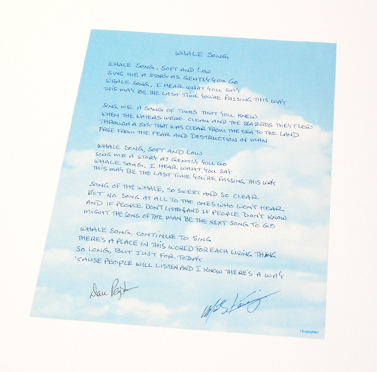 WHALE SONG
WHALE SONG, SOFT AND LOW
SING ME A STORY AS GENTLY YOU GO
WHALE SONG, I HEAR WHAT YOU SAY
THIS MAY BE THE LAST TIME YOU'RE PASSING THIS WAY
SING ME A SONG OF TIMES THAT YOU KNEW
WHEN THE WATERS WERE CLEAN AND THE SEABIRDS THEY FLEW
THROUGH A SKY THAT WAS CLEAR FROM THE SEA TO THE LAND
FREE FROM THE FEAR AND DESTRUCTION OF MAN
WHALE SONG, SOFT AND LOW
SING ME A STORY AS GENTLY YOU GO
WHALE SONG, I HEAR WHAT YOU SAY
THIS MAY BE THE LAST TIME YOU'RE PASSING THIS WAY
SONG OF THE WHALE, SO SWEET AND SO CLEAR
BUT NO SONG AT ALL TO THE ONES WHO WON'T HEAR
AND IF PEOPLE DON'T LISTEN AND IF PEOPLE DON'T KNOW
MIGHT THE SONG OF THE MAN BE THE NEXT SONG TO GO
WHALE SONG, CONTINUE TO SING
THERE'S A PLACE IN THIS WORLD FOR EACH LIVING THING
SO LONG, BUT JUST FOR TODAY
'CAUSE PEOPLE WILL LISTEN AND I KNOW THERE'S A WAY